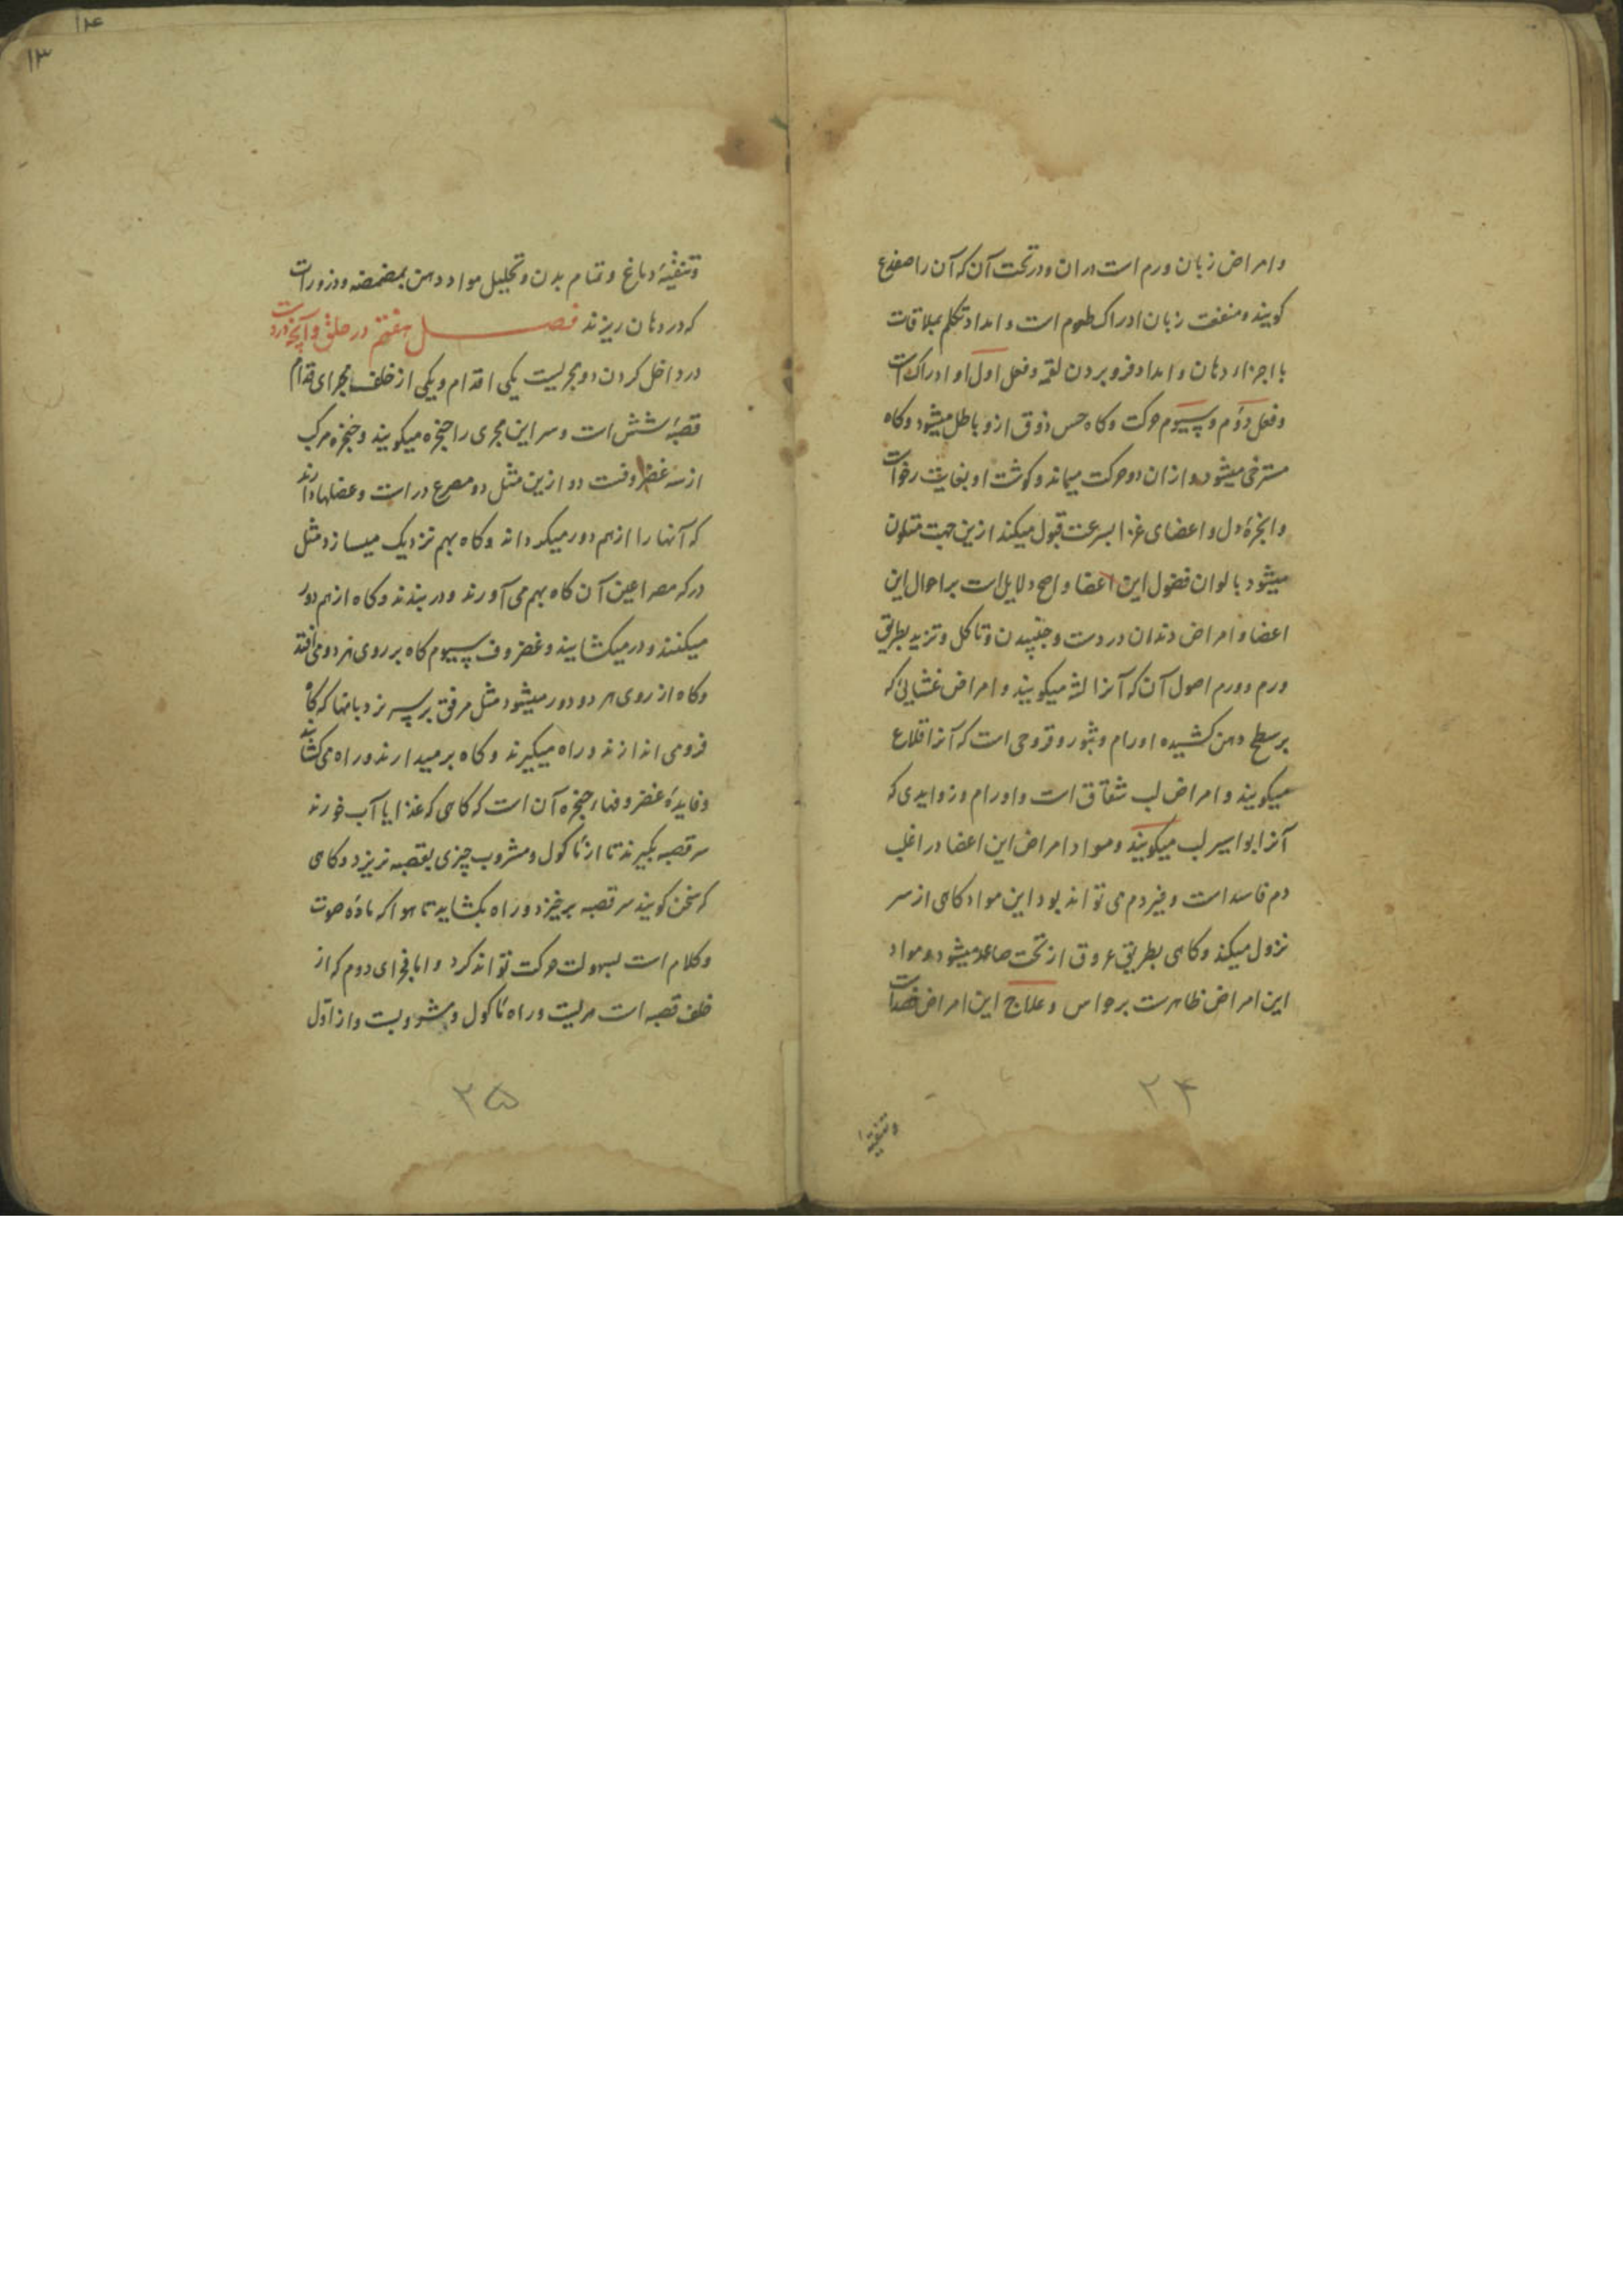 و امراض زبان ورم است دران و در تحت آن که آن را ضفدع
کویند و منفعت زبان ادراک طعوم است و امداد تکلم بملاقات
با اجزاء دهان و امداد فرو بردن لقمه و فعل اول او ادراک است
و فعل دوّم و سیوم حرکت و کاه حس ذوق ازو باطل میشود و کاه
مسترخی میشود و ازان دو حرکت میماند و کوشت او بغایت رخو است
و ابخرهٔ دل و اعضای غذا بسرعت قبول میکند ازین جهت متلون
میشود بالوان فضول این اعضا و اصح دلایل است بر احوال این
اعضا و امراض دندان درد است و جنبیدن و تاکل و تزید بطریق
ورم و ورم اصول آن که آنرا لثه میکویند و امراض غشایی که
بر سطح دهن کشیده اورام و بثور و قروحی است که آنرا قلاع
میکویند و امراض لب شقاق است و اورام و زوایدی که
آنرا بواسیر لب میکویند و مواد امراض این اعضا در اغلب
دم فاسد است و غیر دم می تواند بود این مواد کاهی از سر
نزول میکند و کاهی بطریق عروق از تحت صاعد میشود و مواد
این امراض ظاهرست بر حواس و علاج این امراض فصد است
۲۴
و تنقیه
۱۴
۱۳
و تنقیهٔ دماغ و تمام بدن و تحلیل مواد دهن بمضمضه و ذرورات
که در دهان ریزند فصل هفتم در حلق و آنچه دروست
در داخل کردن دو مجریست یکی از قدام و یکی از خلف مجرای قدام
قصبهٔ شش است و سر این مجری را حنجره میکویند و حنجره مرکب
از سه غضروفست دو ازین مثل دو مصرع در است و عضلها دارند
که آنها را از هم دور میکرداند و کاه بهم نزدیک میسازد مثل
در که مصراعین آن کاه بهم می آورند و در بندند و کاه از هم دور
میکنند و در میکشایند و غضروف سیوم کاه بر روی هر دو می افتد
و کاه از روی هر دو دور میشود مثل بر سر نردبانها که کاه
فرو می اندازند و راه میکیرند و کاه بر میدارند و راه می کشایند
و فایدهٔ غضروفهاء حنجره آن است که کاهی که غذا یا آب خورند
سر قصبه بکیرند تا از ماکول و مشروب چیزی بقصبه نریزد و کاهی
که سخن کویند سر قصبه برخیزد و راه بکشاید تا هوا که مادهٔ صوت
و کلام است بسهولت حرکت تواند کرد و اما مجرای دوم که از
خلف قصبه است مریست و راه ماکول و مشروبست و از اوّل
۲۵